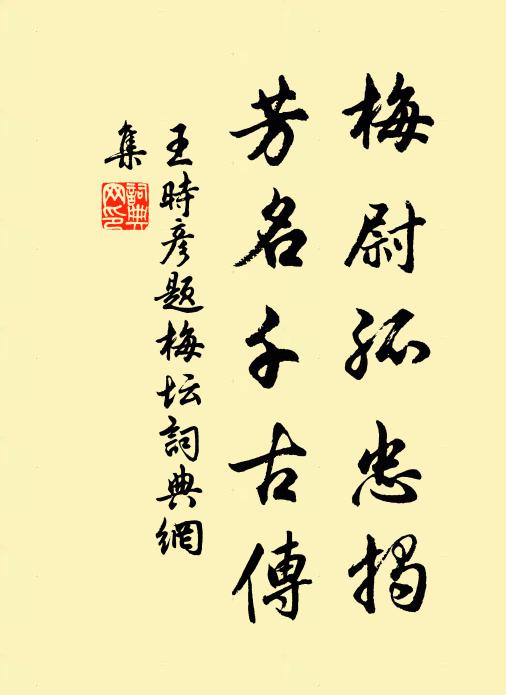 梅尉孤忠揭
芳名千古傳
王時彦題梅坛詞典網
集
詞典網印